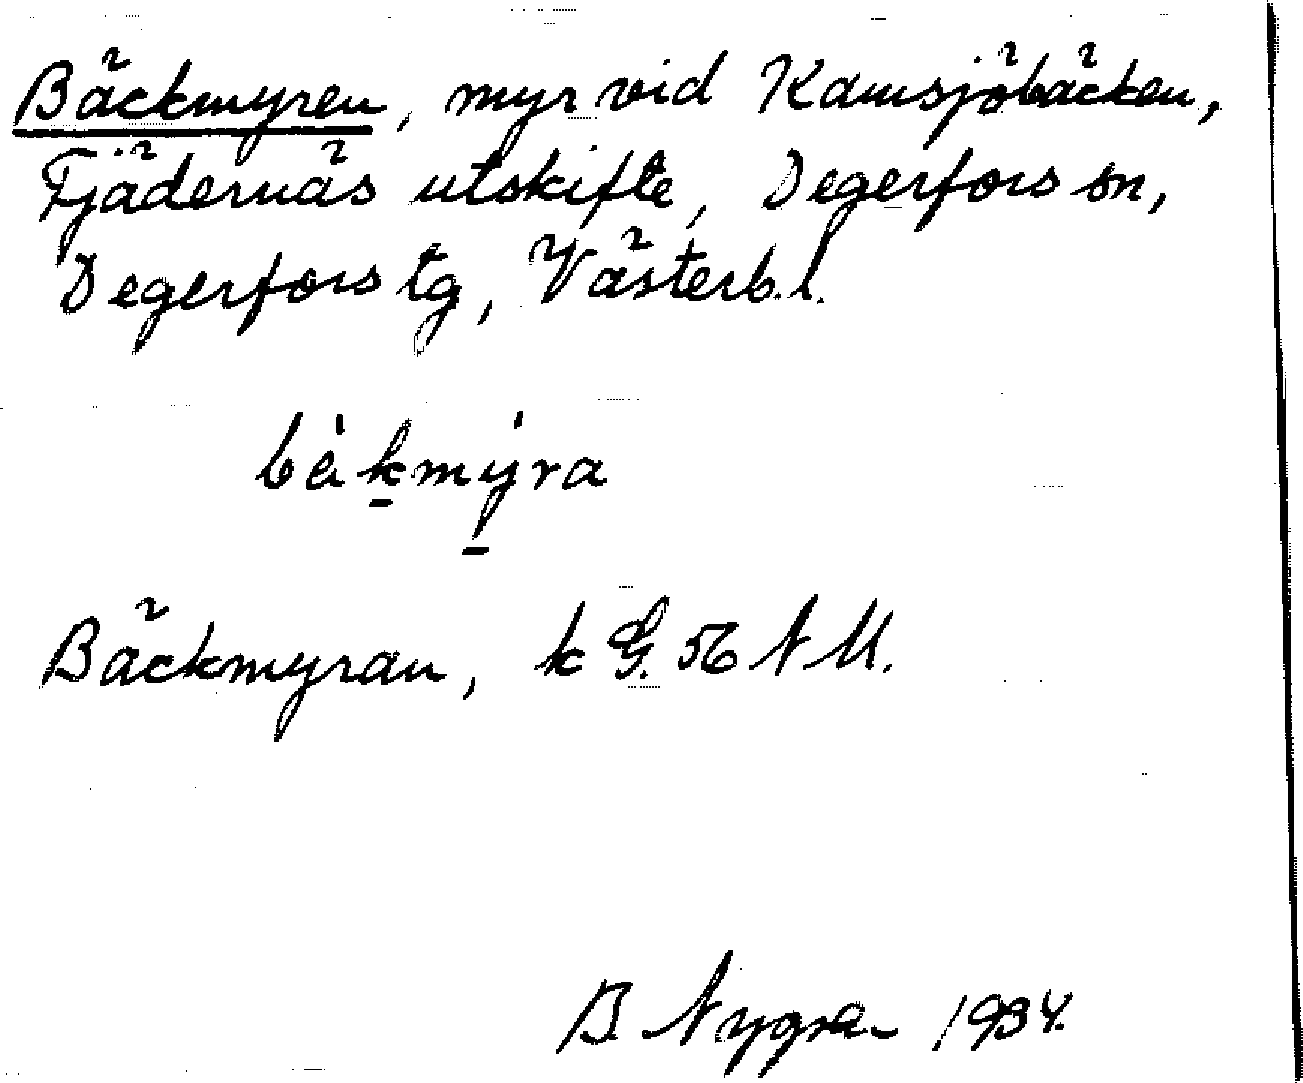 Bäckmyren, myr vid Kamsjöbäcken,
Fjädernäs utskifte, Degerfors sn,
Degerfors tg, Västerb. l.
bèkmýra
Bäckmyran, k G. 56 N M.
B. Nygren 1934.